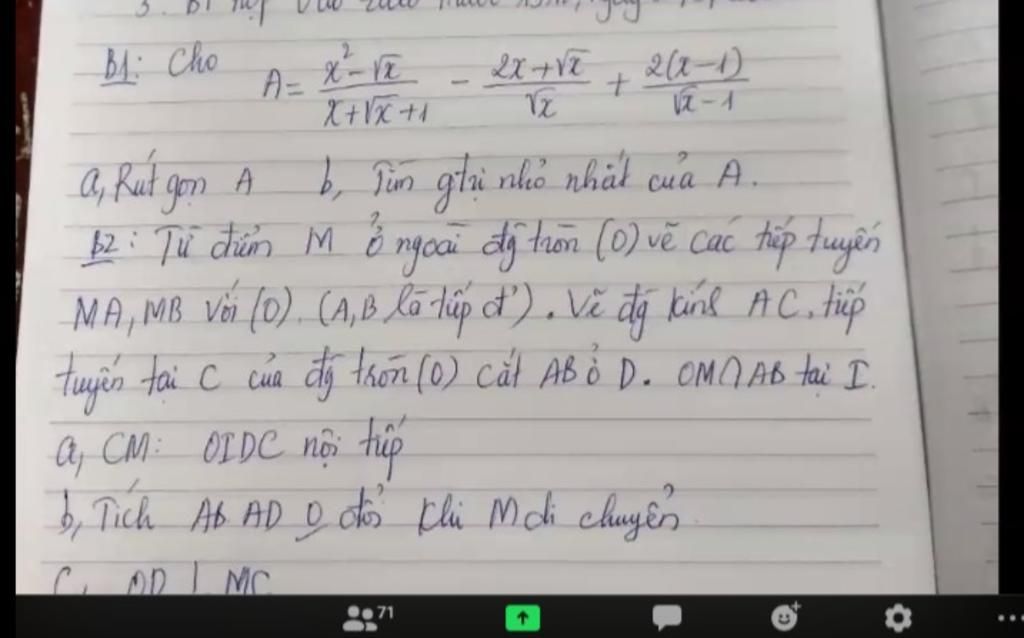 B1: Cho A = \frac{x^2-\sqrt{x}}{x+\sqrt{x}+1} - \frac{2x+\sqrt{x}}{\sqrt{x}} + \frac{2(x-1)}{\sqrt{x}-1}
a, Rút gọn A b, Tìm gtrị nhỏ nhất của A.
B2: Từ điểm M ở ngoài đg tròn (O) vẽ các tiếp tuyến
MA, MB với (O). (A, B là tiếp đ'). Vẽ đg kính AC, tiếp
tuyến tại C của đg tròn (O) cắt AB ở D. OM∩AB tại I.
a, CM: OIDC nội tiếp
b, Tích AB AD 0 đổi khi M di chuyển
C, OD ⊥ MC
71